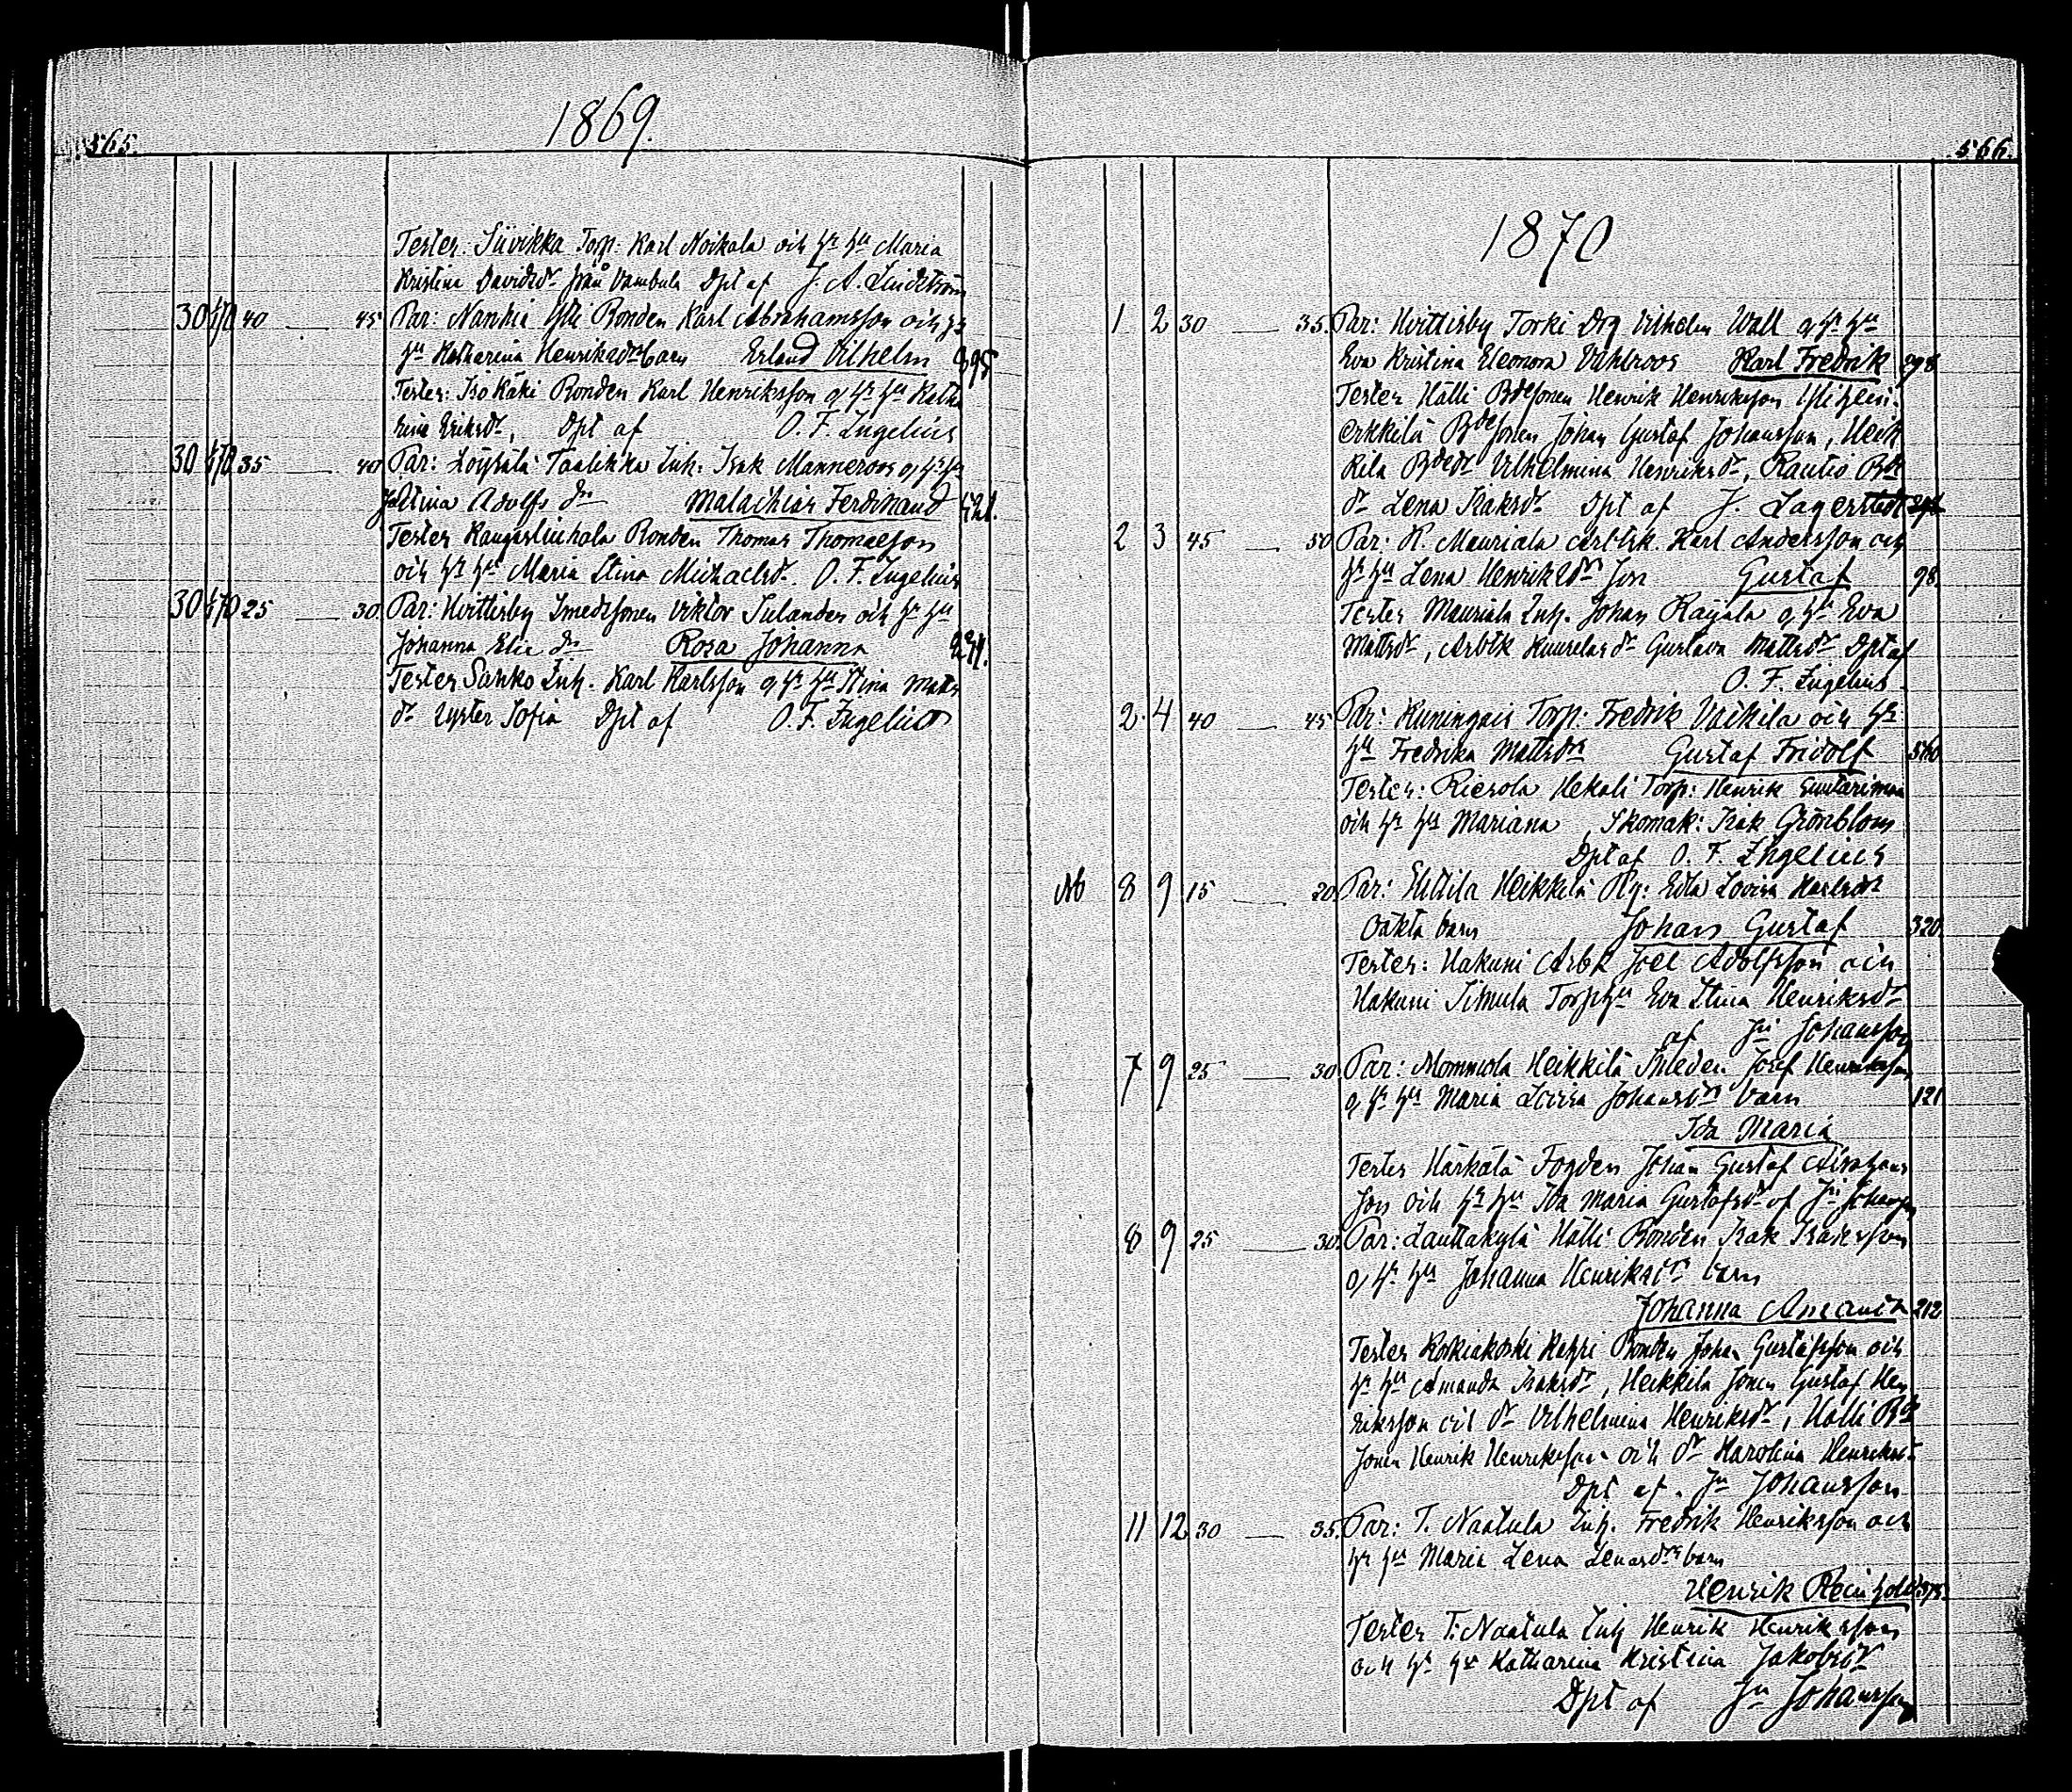 565.
1869.
Testes. Siivikka Torp: Karl Noikala och hs hu Maria
Kristina Davidsdr från Vambula Dpt af J. A. Lindström
30 1/70 40 — 45 Par: Nanhia Ylli Bonden Karl Abrahamsson och hs
hu Katharina Henriksdrs barn Erland Vilhelm 395
Testes: Iso Käki Bonden Karl Henriksson o hs hu Katha
rina Eriksdr, Dpt af O. F. Ingelius
30 1/70 35 — 40 Par: Löysälä Taalikka Inh. Isak Manneroos o hs hu
Justina Adolfs dr Malachias Ferdinand 421.
Testes Kangaslinhala Bonden Thomas Thomasson
och hs hu Maria Stina Michaelsdr. O. F. Ingelius
30 1/70 25 — 30. Par: Hvittisby Smedsonen Viktor Sulander och hs hu
Johanna Elie dr Rosa Johanna 221.
Testes Sanko Inh. Karl Karlsson o hs hu Stina Matts
dr Syster Sofia Dpt af O. F. Ingelius
566.
1870
1 2 30 — 35. Par: Hvittisby Torki Drg Vilhelm Wall o hs hu
Eva Kristina Eleonora Vahlroos Karl Fredrik 298
Testes Hälli Bdesonen Henrik Henriksson
erkkilä Bdesonen Johan Gustaf Johansson, Heik
kilä Bdedr Vilhelmina Henriksdr, Rautio Bde
dr Lena Isaksdr Dpt af J. Lagerstedt
2 3 45 — 50 Par: R. Mauriala Arbtsk. Karl Andersson och
hs hu Lena Henriksdrs son Gustaf 98
Testes Mauriala Inh. Johan Rajala o hu Eva
Mattsdr, Arbtk dr Gustava Mattsdr Dpt af
O. F. Ingelius
2. 4 40 — 45 Par: Kuningais Torp: Fredrik Vaikila och hs
hu Fredrika Mattsdrs Gustaf Fridolf 560
Testes: Riesola Hekali Torp: Henrik
och hs hu Mariana, Skomak: Isak Grönblom
Dpt af O. F. Ingelius
Nb 8 9 15 — 20. Par: Ehtila Heikkilä Pig: Eda Lovisa Karlsdr
oäkta barn Johan Gustaf 320.
Testes: Hakuni Arbk Joel Adolfsson och
Hakuni Simula Torphu Eva Stina Henriksdr
af Jn Johansson
7 9 25 — 30. Par: Mommola Heikkilä Josef Henriksson
o hs hu Maria Lovisa Johansdrs barn 121
Ida Maria
Testes Härkälä Fogden Johan Gustaf Abraham
son och hs hu Ida Maria Gustafsdr af Jn Johansson
8 9 25 — 30. Par: Lauttakylä Hälli Bonden Isak Isaksson
o hs hu Johanna Henriksdrs barn
Johanna Amanda 212
Testes Koskiakoski Kappi Bonden Johan Gustafsson och
hs hu Amanda Isaksdr, Heikkilä sonen Gustaf Hen
riksson och dr Vilhelmina Henriksdr, Hälli Bde
sonen Henrik Henriksson och dr Karolina Henriksdr
Dpt af. Jn Johansson
11 12 30 — 35. Par: T. Naatula Inh. Fredrik Henriksson och
hs hu Maria Lena Lenardsdrs barn
Henrik Reinhold 375.
Testes T. Naatula Inh Henrik Henriksson
och hs hu Katharina Kristina Jakobsdr
Dpt af Jn Johansson